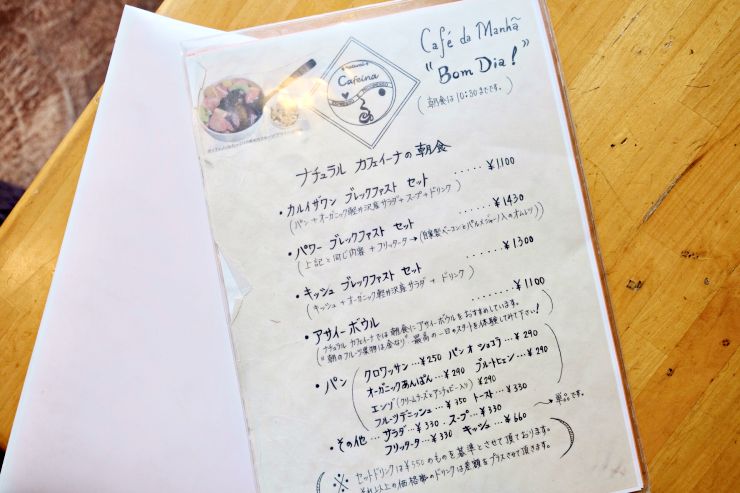 Natural
Cafeina
Café da Manhã
"Bom Dia!"
(朝食は10:30までです。)
ナチュラル カフェイーナの朝食
・カルイザワン ブレックファスト セット ......¥1100
(パン+オーガニック軽井沢産サラダ+スープ+ドリンク)
・パワー ブレックファスト セット ......¥1430
(上記と同じ内容 + フリッタータ→(自家製ベーコンとパルメジャーノ入のオムレツ)
・キッシュ ブレックファスト セット ......¥1300
(キッシュ+オーガニック軽井沢産サラダ + ドリンク)
・アサイー ボウル ......¥1100
(ナチュラル カフェイーナでは朝食にアサイーボウルをおすすめしています。
"朝のフルーツ果物は金なり" 最高の一日のスタートを体験してみて下さい!)
・パン
クロワッサン...¥250 パン オ ショコラ...¥290
オーガニックあんぱん...¥290 ブルートヒェン...¥290
エンゾ(クリームチーズとアンチョビー入り)¥290
フルーツデニッシュ...¥350 トースト...¥330
・その他...サラダ...¥330 . スープ...¥330 →単品です。
フリッタータ...¥330 キッシュ...¥660
(※ セットドリンクは¥550のものを基準とさせて頂ております。
それ以上の価格帯のドリンクは差額をプラスさせて頂きます。)